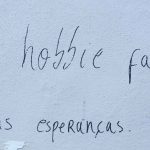 hobbie fa
as esperanças.